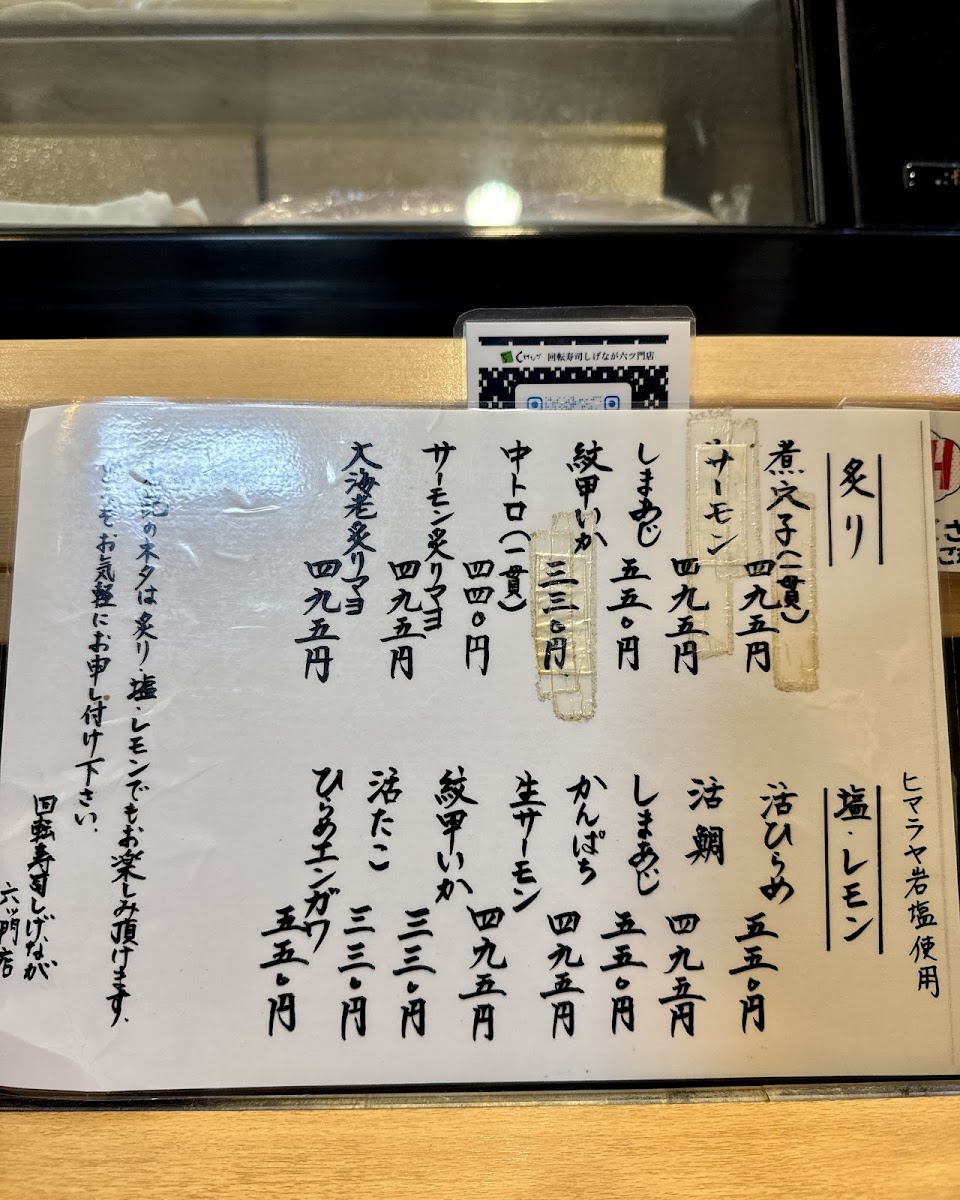 回転寿司しげなが六ツ門店
炙り
煮穴子(一貫)
四九五円
サーモン
四九五円
しまあじ
五五〇円
紋甲いか
三三〇円
中トロ(一貫)
四四〇円
サーモン炙りマヨ
四九五円
大海老炙りマヨ
四九五円
ヒマラヤ岩塩使用
塩・レモン
活ひらめ
五五〇円
活鯛
四九五円
しまあじ
五五〇円
かんぱち
四九五円
生サーモン
四九五円
紋甲いか
三三〇円
活たこ
三三〇円
ひらめエンガワ
五五〇円
記のネタは炙り・塩・レモンでもお楽しみ頂けます、
お気軽にお申し付け下さい、
回転寿司しげなが
六ッ門店